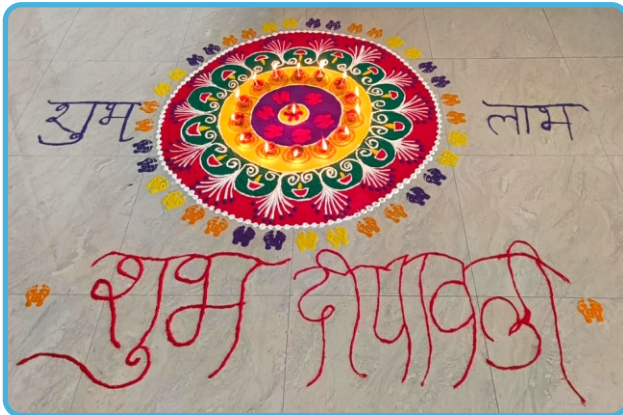 शुभ लाभ
शुभ दीपावली